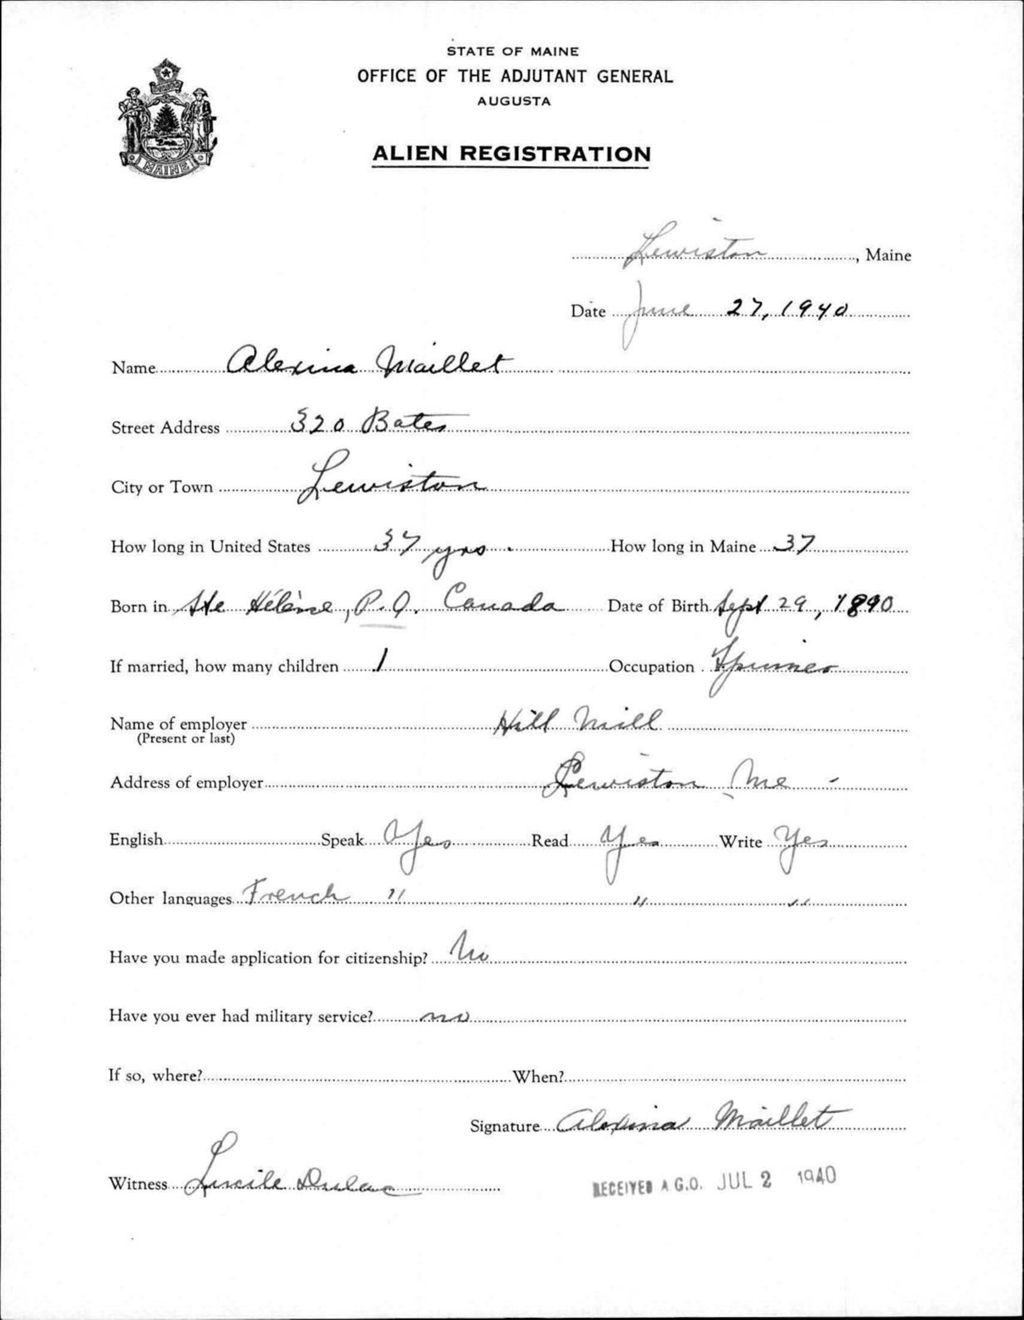 STATE OF MAINE
OFFICE OF THE ADJUTANT GENERAL
AUGUSTA
MAINE
ALIEN REGISTRATION
Lewiston, Maine
Date June 27, 1940
Name Alexina Maillet
Street Address 320 Bates
City or Town Lewiston
How long in United States 37 yrs. How long in Maine 37
Born in Ste Hélène, P.Q. Canada Date of Birth Sept 29, 1890
If married, how many children 1 Occupation Spinner
Name of employer Hill Mill
(Present or last)
Address of employer Lewiston Me -
English Speak Yes Read Yes Write Yes
Other languages French " " "
Have you made application for citizenship? No
Have you ever had military service? no
If so, where? When?
Signature Alexina Maillet
Witness Lucile Dulac
RECEIVED A.G.O. JUL 2 1940